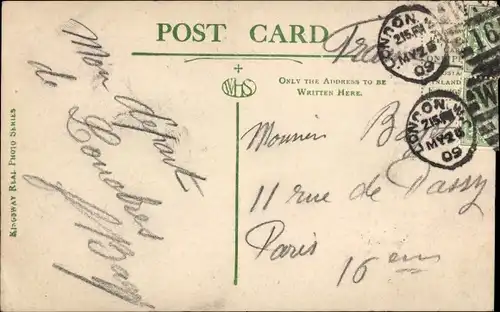 POST CARD
WHS
ONLY THE ADDRESS TO BE
WRITTEN HERE.
KINGSWAY REAL PHOTO SERIES
Mon départ
de
Londres
LONDON
2.15 PM
MY 26
09
LONDON
2.15 PM
MY 26
09
16
INLAND
Monsieur
11 rue de Passy
Paris
16 em